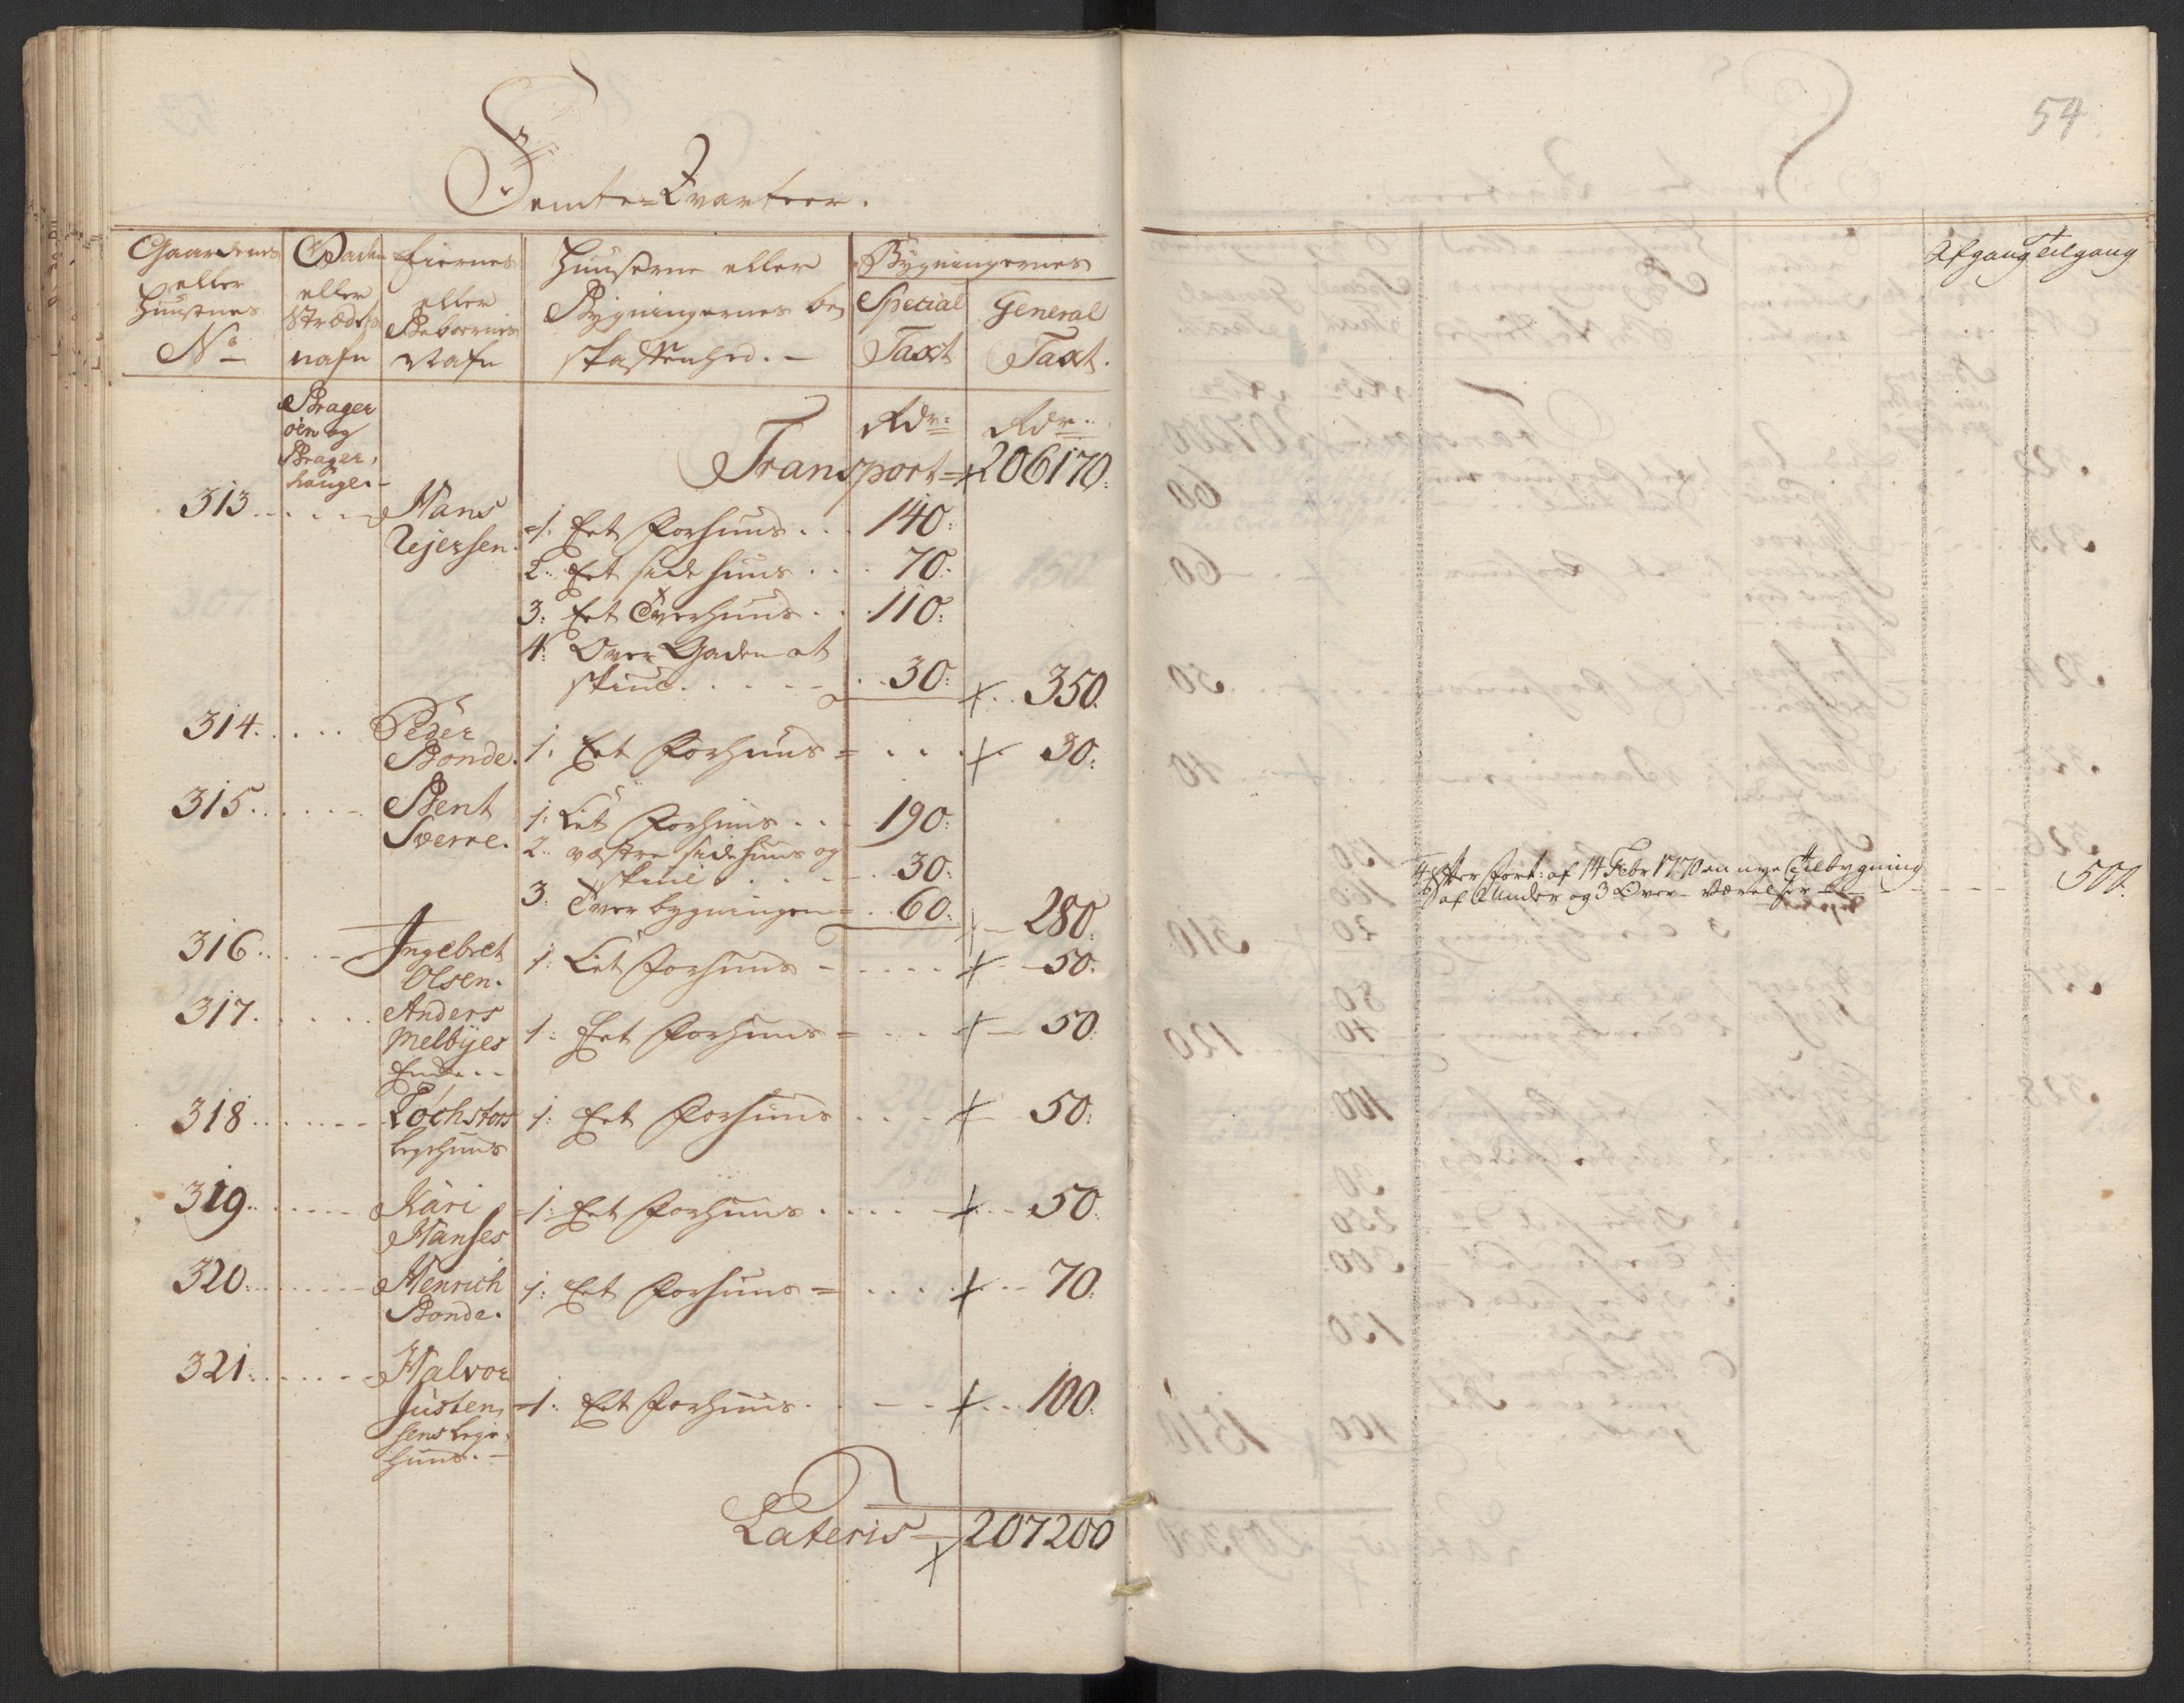 Femte=Qvarteer.
Gaardenes eller Huusenes No
Gaden eller Strædets nafn
Eiernes eller Beboernes Nafn
Huuserne eller Bygningernes beskaffenhed. -
Bygningernes
Special Taxt
General Taxt.
Brager
öen og
Brager,
hauge.-
Rdr:
Rdr..
Transport= 206170.
313. Hans
Ugersen. 1. Eet Forhuus... 140:
2.. Eet sidehuus... 70:
3: Eet Tverhuus.. 110:
4: Over Gaden et
skiul..... 30: 350.
314. Peder
Bonde. 1. Eet Forhuus=... 30:
315. Bent
Sverre. 1: Eet Forhuus... 190:
2.. væstre sidehuus og
skiul.... 30:
3: Tverbygningen=.. 60: 280:
316. Ingebret
Olsen. 1: Eet Forhuus - .... 50:
317. Anders
Melbÿes
Enke.. 1: Eet Forhuus=... 50.
318. Töchstors
Leyehuus 1: Eet Forhuus ... 50:
319. Kari
Hanses 1: Eet Forhuus..... 50:
320. Henrich
Bonde. 1: Eet Forhuus=.... 70.
321. Halvor
Justen,
sens Leye,
huus.- 1: Eet Forhuus..... 100.
Lateris= 207200
54
Afgang Tilgang
Efter Forr: af 14 Febr 1770 en nye Tilbygning
af Under og 3 Over Værelser 500.